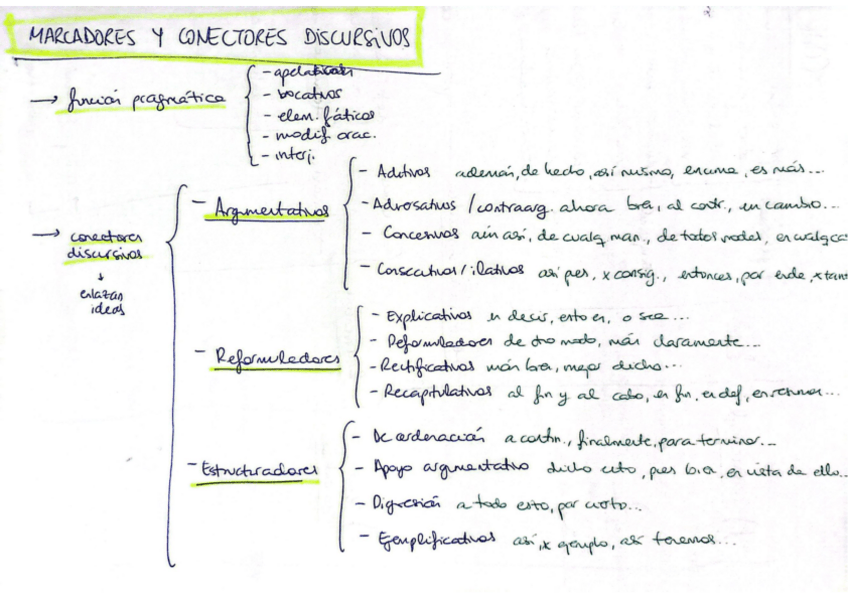 MARCADORES Y CONECTORES DISCURSIVOS
→ función pragmática
- apelativos
- vocativos
- elem. fáticos
- modif. orac.
- interj.
→ conectores
discursivos
↓
enlazan
ideas
- Argumentativos
- Aditivos además, de hecho, así mismo, encima, es más...
- Adversativos / contraarg. ahora bien, al contr., en cambio...
- Concesivos aún así, de cualq. man., de todos modos,
- Consecutivos / ilativos así pues, x consig., entonces, por ende, x tant
- Reformuladores
- Explicativos es decir, esto es, o sea...
- Reformuladores de otro modo, más claramente...
- Rectificativos más bien, mejor dicho...
- Recapitulativos al fin y al cabo, en fin, en def, en resumen...
- Estructuradores
- De ordenación a contin., finalmente, para terminar...
- Apoyo argumentativo dicho esto, pues bien, en vista de ello...
- Digresión a todo esto, por cierto...
- Ejemplificativos así, x ejemplo, así tenemos...